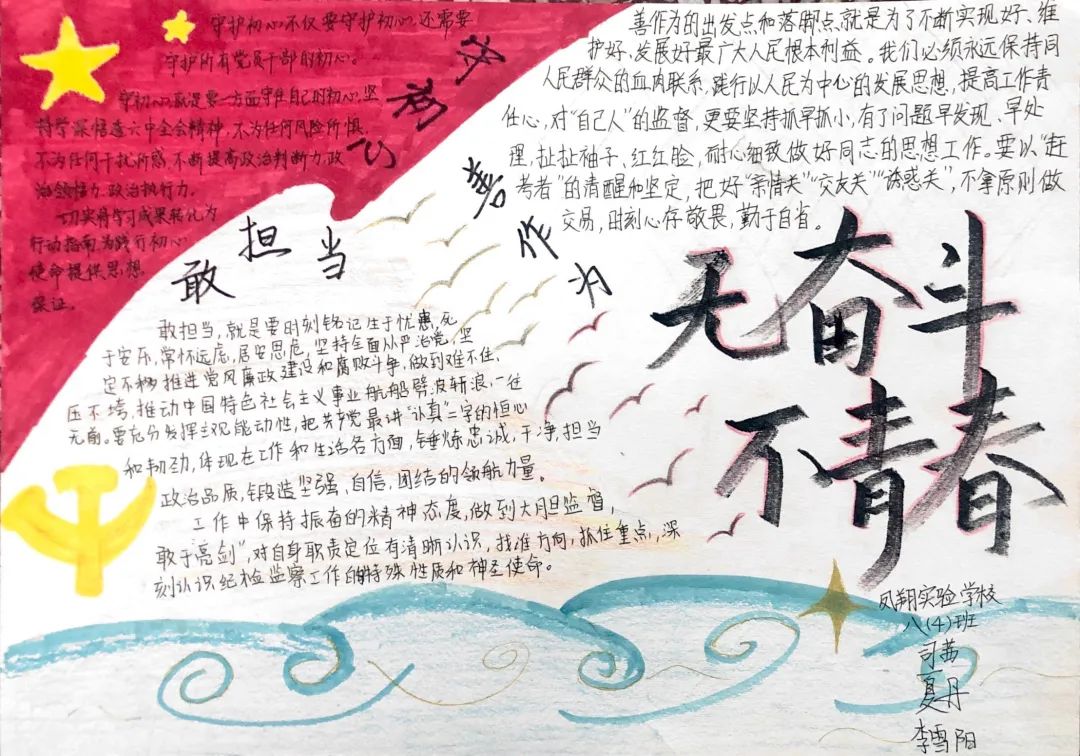 守护初心不仅要守护初心,还需要
守护所有党员干部的初心。
守初心,就是要一方面守住自己的初心,坚
持学深悟透六中全会精神,不为任何风险所惧,
不为任何干扰所惑,不断提高政治判断力,政
治领悟力,政治执行力。
切实将学习成果转化为
行动指南,为践行初心
使命提供思想
保证。
守初心
善作为
善作为的出发点和落脚点,就是为了不断实现好、维
护好、发展好最广大人民根本利益。我们必须永远保持同
人民群众的血肉联系,践行以人民为中心的发展思想,提高工作责
任心,对“自己人”的监督,更要坚持抓早抓小,有了问题早发现、早处
理,扯扯袖子、红红脸,耐心细致做好同志的思想工作。要以“赶
考者”的清醒和坚定,把好“亲情关”“交友关”“诱惑关”,不拿原则做
交易,时刻心存敬畏,勤于自省。
敢担当
敢担当,就是要时刻铭记生于忧患,死
于安乐,常怀远虑,居安思危,坚持全面从严治党,坚
定不移推进党风廉政建设和腐败斗争,做到难不住、
压不垮,推动中国特色社会主义事业航船劈波斩浪,一往
无前。要充分发挥主观能动性,把共产党最讲“认真”二字的恒心
和韧劲,体现在工作和生活各方面,锤炼忠诚,干净,担当
政治品质,锻造坚强,自信,团结的领航力量。
工作中保持振奋的精神态度,做到大胆监督,
敢于“亮剑”,对自身职责定位有清晰认识,找准方向,抓住重点,深
刻认识纪检监察工作的特殊性质和神圣使命。
无奋斗
不青春
凤翔实验学校
八(4)班
司茜
夏丹
李雪阳